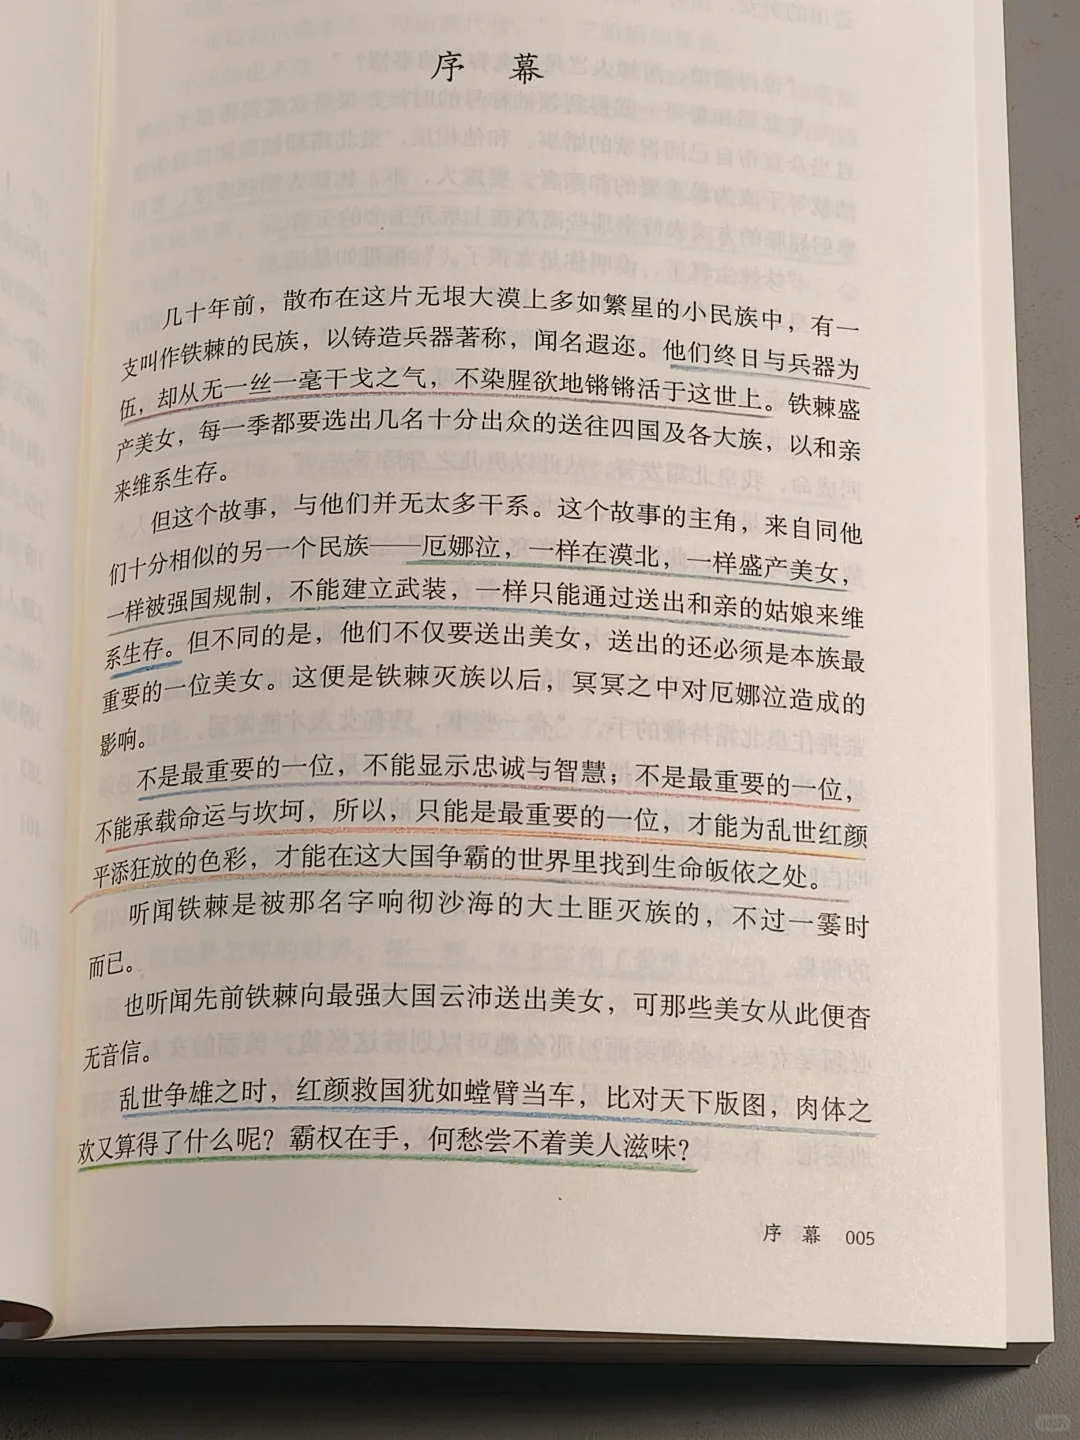 序 幕
几十年前，散布在这片无垠大漠上多如繁星的小民族中，有一
支叫作铁棘的民族，以铸造兵器著称，闻名遐迩。他们终日与兵器为
伍，却从无一丝一毫干戈之气，不染腥欲地锵锵活于这世上。铁棘盛
产美女，每一季都要选出几名十分出众的送往四国及各大族，以和亲
来维系生存。
但这个故事，与他们并无太多干系。这个故事的主角，来自同他
们十分相似的另一个民族——厄娜泣，一样在漠北，一样盛产美女，
一样被强国规制，不能建立武装，一样只能通过送出和亲的姑娘来维
系生存。但不同的是，他们不仅要送出美女，送出的还必须是本族最
重要的一位美女。这便是铁棘灭族以后，冥冥之中对厄娜泣造成的
影响。
不是最重要的一位，不能显示忠诚与智慧；不是最重要的一位，
不能承载命运与坎坷，所以，只能是最重要的一位，才能为乱世红颜
平添狂放的色彩，才能在这大国争霸的世界里找到生命皈依之处。
听闻铁棘是被那名字响彻沙海的大土匪灭族的，不过一霎时
而已。
也听闻先前铁棘向最强大国云沛送出美女，可那些美女从此便杳
无音信。
乱世争雄之时，红颜救国犹如螳臂当车，比对天下版图，肉体之
欢又算得了什么呢？霸权在手，何愁尝不着美人滋味？
序 幕 005